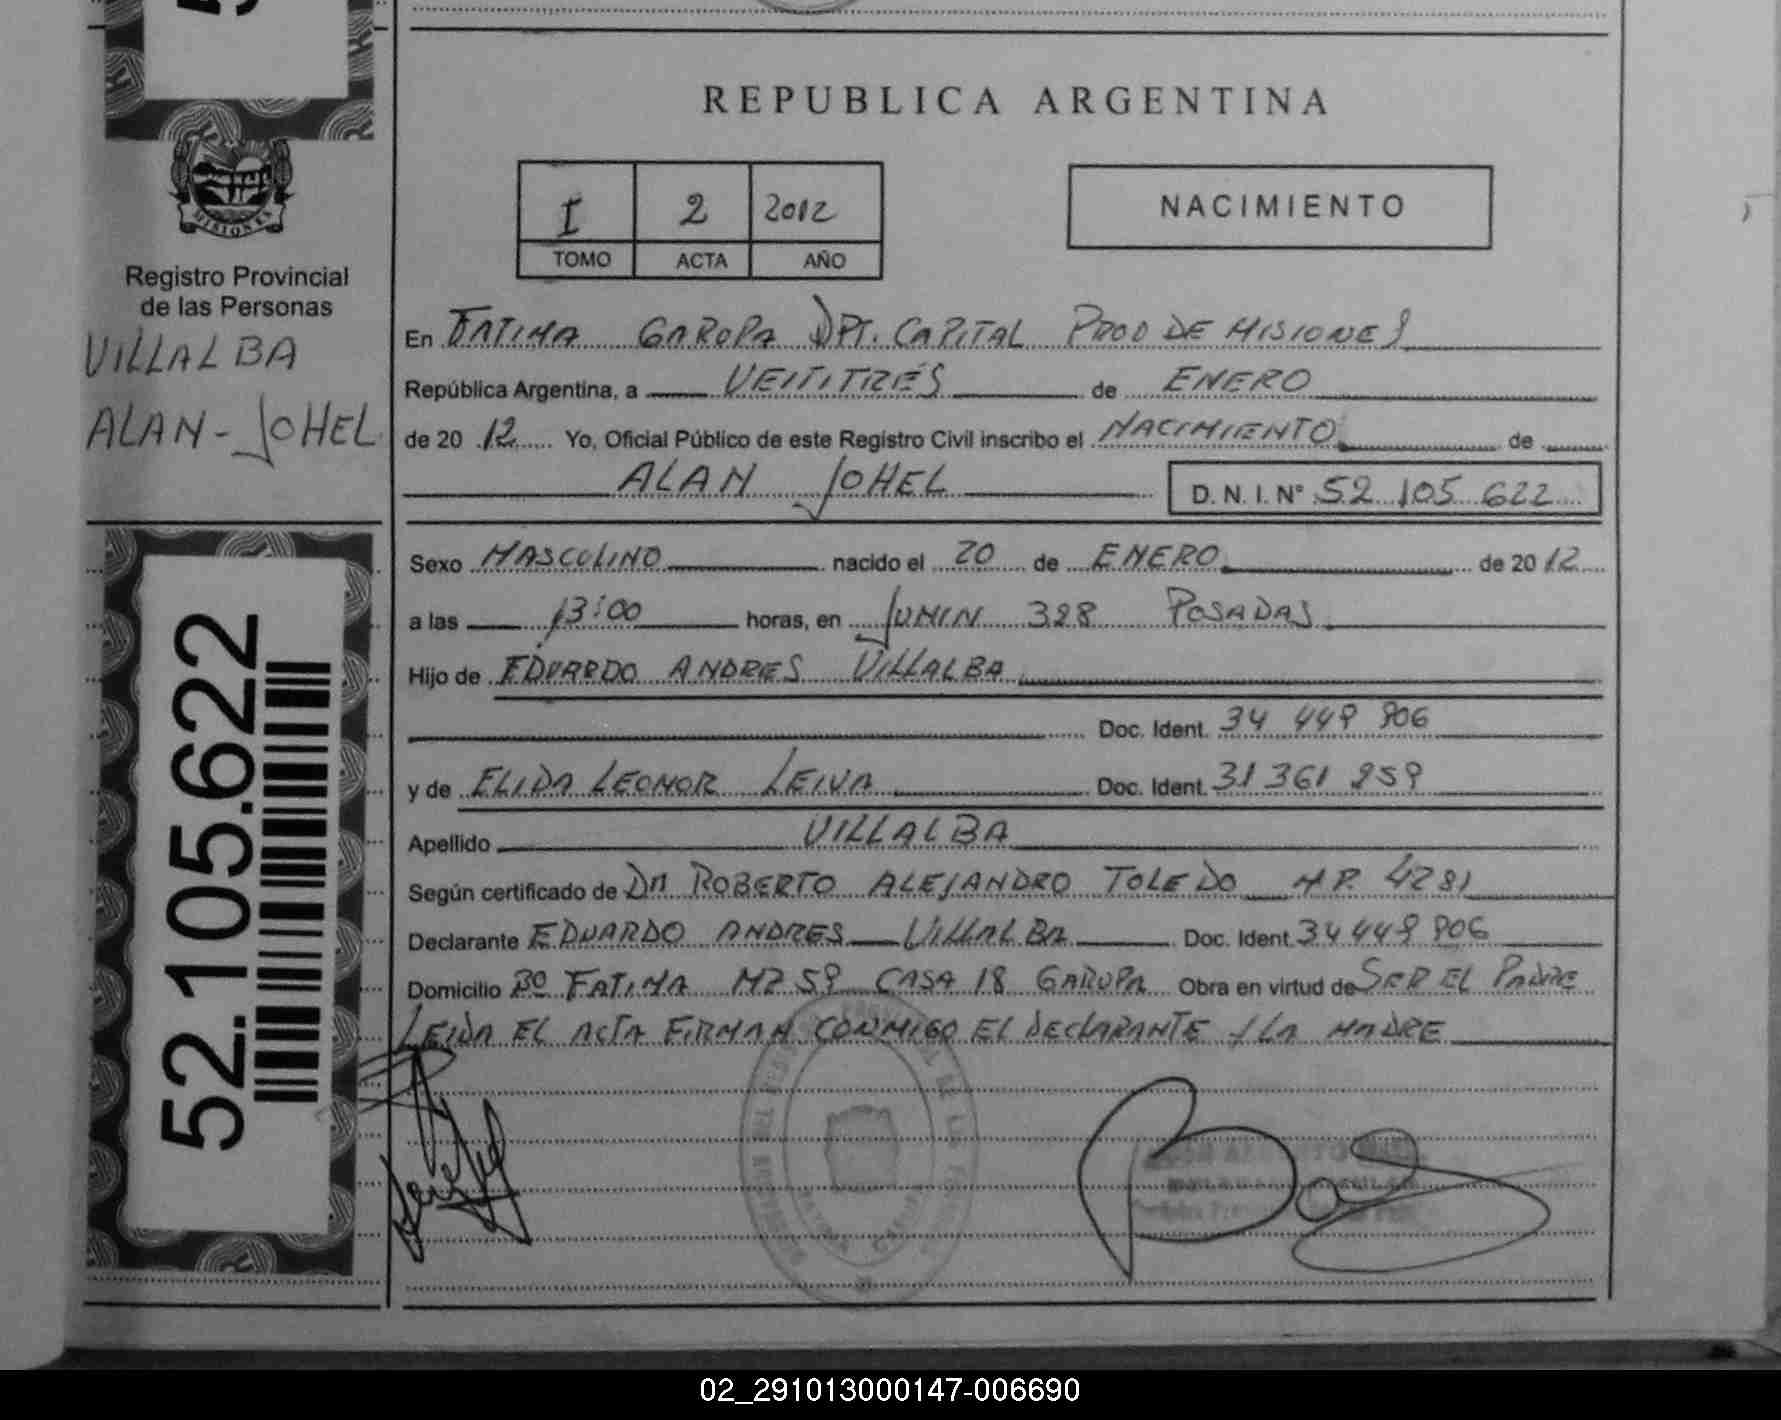 REPUBLICA ARGENTINA
I 2 2012
TOMO ACTA AÑO
NACIMIENTO
MISIONES
Registro Provincial
de las Personas
VILLALBA
ALAN-JOHEL
52.105.622
En FATIMA GARUPA DPT. CAPITAL PROV DE MISIONES
República Argentina, a VEITITRES de ENERO
de 20 12 Yo, Oficial Público de este Registro Civil inscribo el NACIMIENTO de
ALAN JOHEL D. N. I. N° 52 105 622
Sexo MASCULINO nacido el 20 de ENERO de 20 12
a las 13:00 horas, en JUNIN 328 POSADAS
Hijo de EDUARDO ANDRES VILLALBA
Doc. Ident. 34 449 906
y de ELIDA LEONOR LEIVA Doc. Ident. 31 361 959
Apellido VILLALBA
Según certificado de Dn ROBERTO ALEJANDRO TOLEDO M P. 4281
Declarante EDUARDO ANDRES VILLALBA Doc. Ident. 34 449 906
Domicilio Bº FATIMA MZ 59 CASA 18 GARUPA Obra en virtud de SER EL PADRE
LEIDA EL ACTA FIRMAN CONMIGO EL DECLARANTE y LA MADRE
02_291013000147-006690